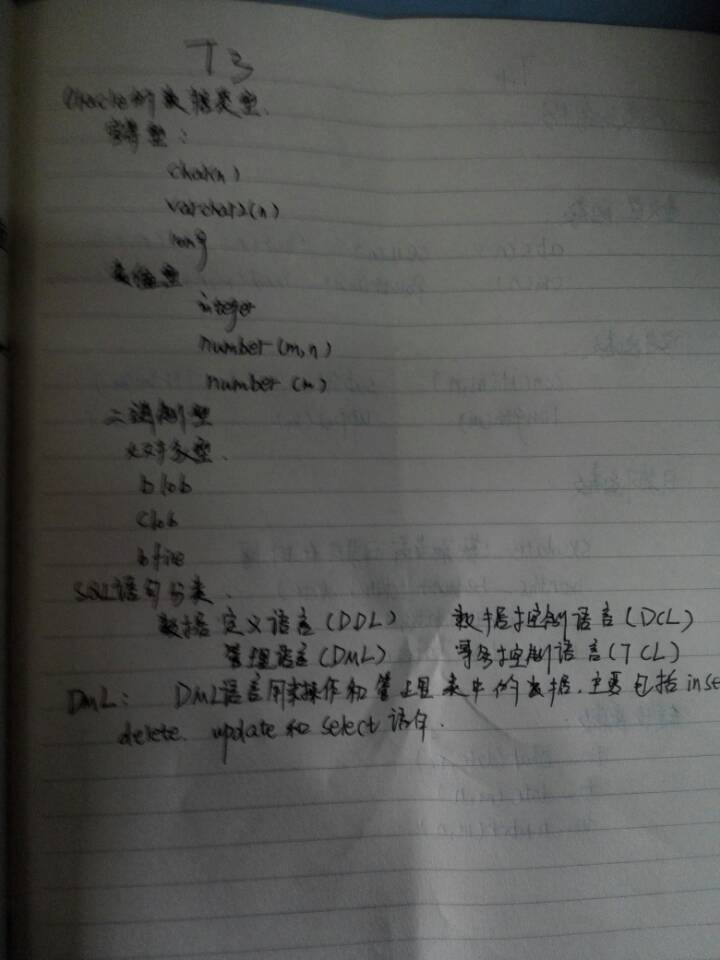 T3
Oracle的数据类型.
字符型:
char(n)
varchar2(n)
long
数值型
integer
number(m,n)
number(m)
二进制型
对象型.
blob
clob
bfile
SQL语句分类.
数据定义语言(DDL) 数据控制语言(DCL)
管理语言(DML) 事务控制语言(TCL)
DML: DML语言用来操作和管理表中的数据.主要包括inse
delete. update和select语句.